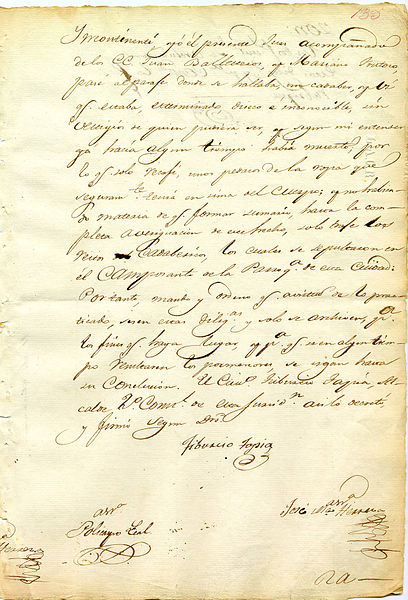 155
Incontinenti, yó el presente Juez acompañado
de los CC. Juan Ballesteros, y Mariano
pasé al paraje donde se hallaba un cadaber, y vi
q.e estaba exterminado, seco e inconocible, sin
de quien pudiera ser, y segun mi entender
ya hacia algun tiempo había muerto, por
lo q.e solo recojí, unos pedazos de la ropa que
seguram.te tenia en sima del Cuerpo; y no habien
do materia de q.e formar sumario, hasta la com
pleta averiguacion de ese hecho, solo
los cuales se sepultaron en
el Camposanto de la Parroq.a de esta Ciudad:
Portanto, mando y ordeno q.e en virtud de lo prac
ticado, sesen estas Dilig.as y solo se archiven, p.a
los fines q.e haya lugar, y p.a q.e si en algun tiem
po resultaren los pormenores se sigan hasta
su Conclusion. El Ciud.o Tiburcio Tapia, Al
calde, y de esta Jurisd.n asi lo decretó
y firmó segun Dro.
Tiburcio Tapia
assa
Policarpo Leal
assa
José Herrera